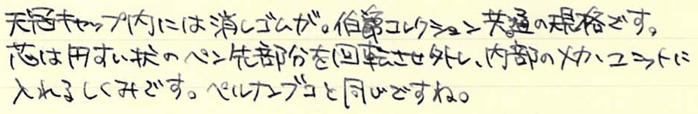 天冠キャップ内には消しゴムが。伯爵コレクション共通の規格です。
芯は円すい状のペン先部分を回転させ外し、内部のメカ・ユニットに
入れるしくみです。ペルナンブコと同じですね。